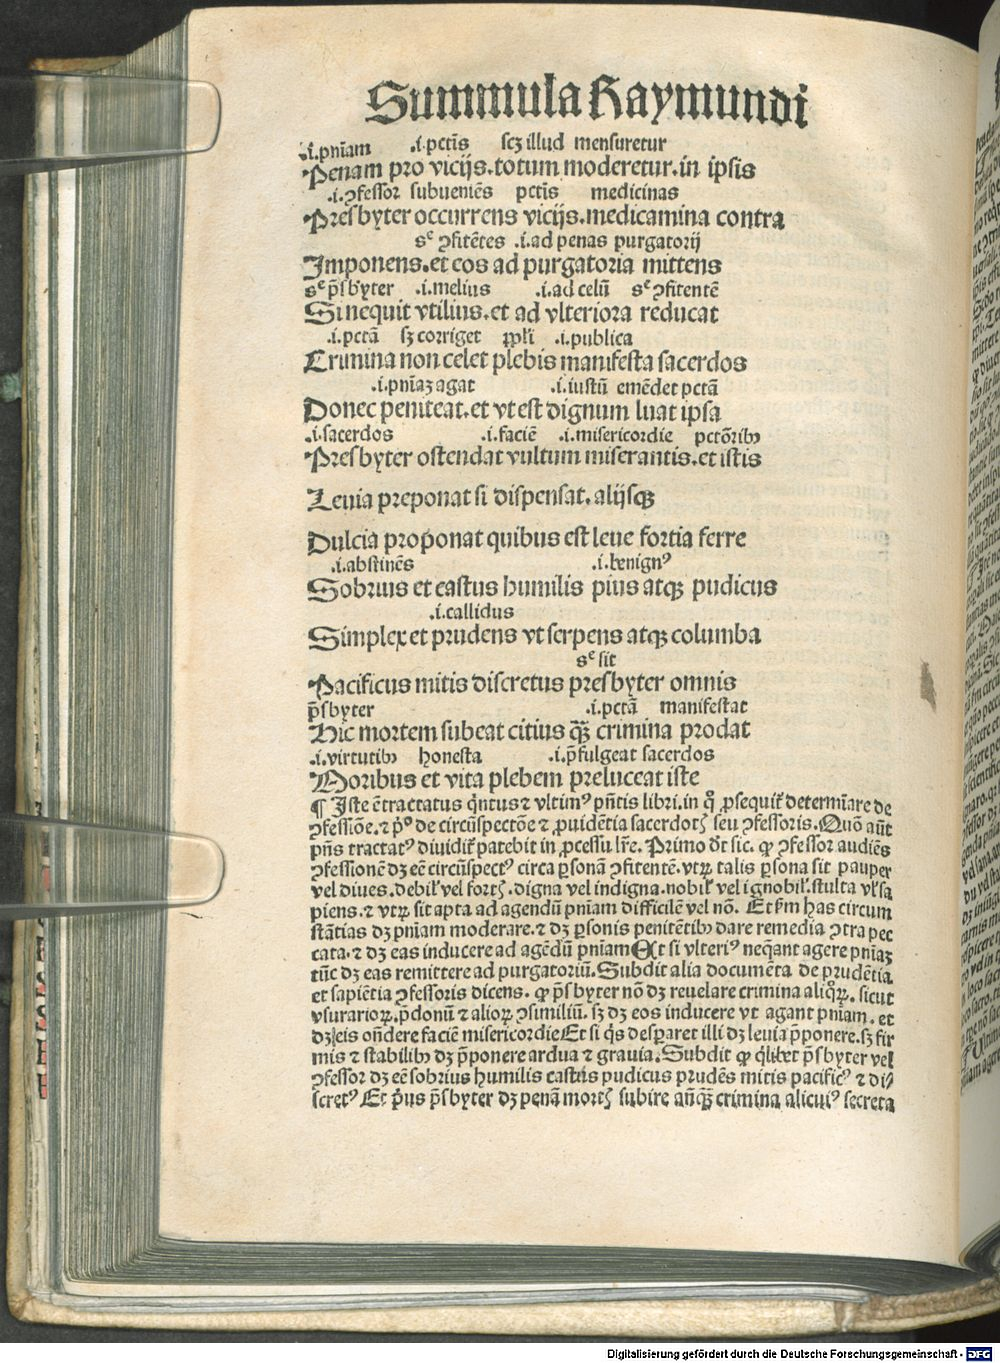 Summula Raymundi
.i.pnīam .i.pctīs scꝫ illud mensuretur
Penam pro vicijs.totum moderetur.in ipsis
.i.ꝯfessor subueniēs pctīs medicinas
Presbyter occurrens vicijs.medicamina contra
sᵉ ꝯfitētes .i.ad penas purgatorij
Imponens.et eos ad purgatoria mittens
sᵉ p̄sbyter .i.melius .i.ad celū sᵉ ꝯfitentē
Si nequit vtilius.et ad vlteriora reducat
.i.pctā sꝫ corriget ppl̄i .i.publica
Crimina non celet plebis manifesta sacerdos
.i.pnīaꝫ agat .i.iustū emēdet pctā
Donec peniteat.et vt est dignum luat ipsa
.i.sacerdos .i.faciē .i.misericordie pctōribꝰ
Presbyter ostendat vultum miserantis.et istis
Leuia preponat si dispensat.alijsqꝫ
Dulcia proponat quibus est leue fortia ferre
.i.abstinēs .i.benignꝰ
Sobrius et castus humilis pius atqꝫ pudicus
.i.callidus
Simplex et prudens vt serpens atqꝫ columba
sᵉ sit
Pacificus mitis discretus presbyter omnis
p̄sbyter .i.pctā manifestat
Hic mortem subeat citius q̄ꝫ crimina prodat
.i.virtutibꝰ honesta .i.p̄fulgeat sacerdos
Moribus et vita plebem preluceat iste
¶ Iste ē tractatus qͥntus ⁊ vltimꝰ pn̄tis libri.in qͦ ꝓsequit̉ determīare de
ꝯfessiōe.⁊ pͦ de circūspectōe ⁊ ꝓuidētia sacerdotꝭ seu ꝯfessoris.Quō aūt
pn̄s tractatꝰ diuidit̉ patebit in ꝓcessu lr̄e. Primo dr̄t sic. ꝙ ꝯfessor audiēs
ꝯfessionē dꝫ eē circūspectꝰ circa ꝑsonā ꝯfitentē.vtꝝ talis ꝑsona sit pauper
vel diues.debil̓ vel fortꝭ.digna vel indigna.nobil̓ vel ignobil̓.stulta vl̓ sa
piens.⁊ vtꝝ sit apta ad agendū pnīam difficilē vel nō. Et ẜm has circum
stātias dꝫ pnīam moderare.⁊ dꝫ ꝑsonis penitētibꝰ dare remedia ꝯtra pec
cata.⁊ dꝫ eas inducere ad agēdū pnīam Et si vlteriꝰ neqͣnt agere pnīaꝫ
tūc dꝫ eas remittere ad purgatoriū.Subdit alia documēta de prudētia
et sapiētia ꝯfessoris dicens. ꝙ p̄sbyter nō dꝫ reuelare crimina aliqͦꝝ. sicut
vsurarioꝝ.p̄donū ⁊ alioꝝ ꝯsimiliū. sꝫ dꝫ eos inducere vt agant pnīam. et
dꝫ eis on̄dere faciē misericordie Et si qͥs desꝑaret illi dꝫ leuia p̄ponere.sꝫ fir
mis ⁊ stabilibꝰ dꝫ p̄ponere ardua ⁊ grauia.Subdit ꝙ qͥlibet p̄sbyter vel
ꝯfessor dꝫ eē sobrius humilis castus pudicus prudēs mitis pacificꝰ ⁊ di
scretꝰ Et p̄us p̄sbyter dꝫ penā mortꝭ subire an̄q̄ꝫ crimina alicuiꝰ secreta
Digitalisierung gefördert durch die Deutsche Forschungsgemeinschaft - DFG